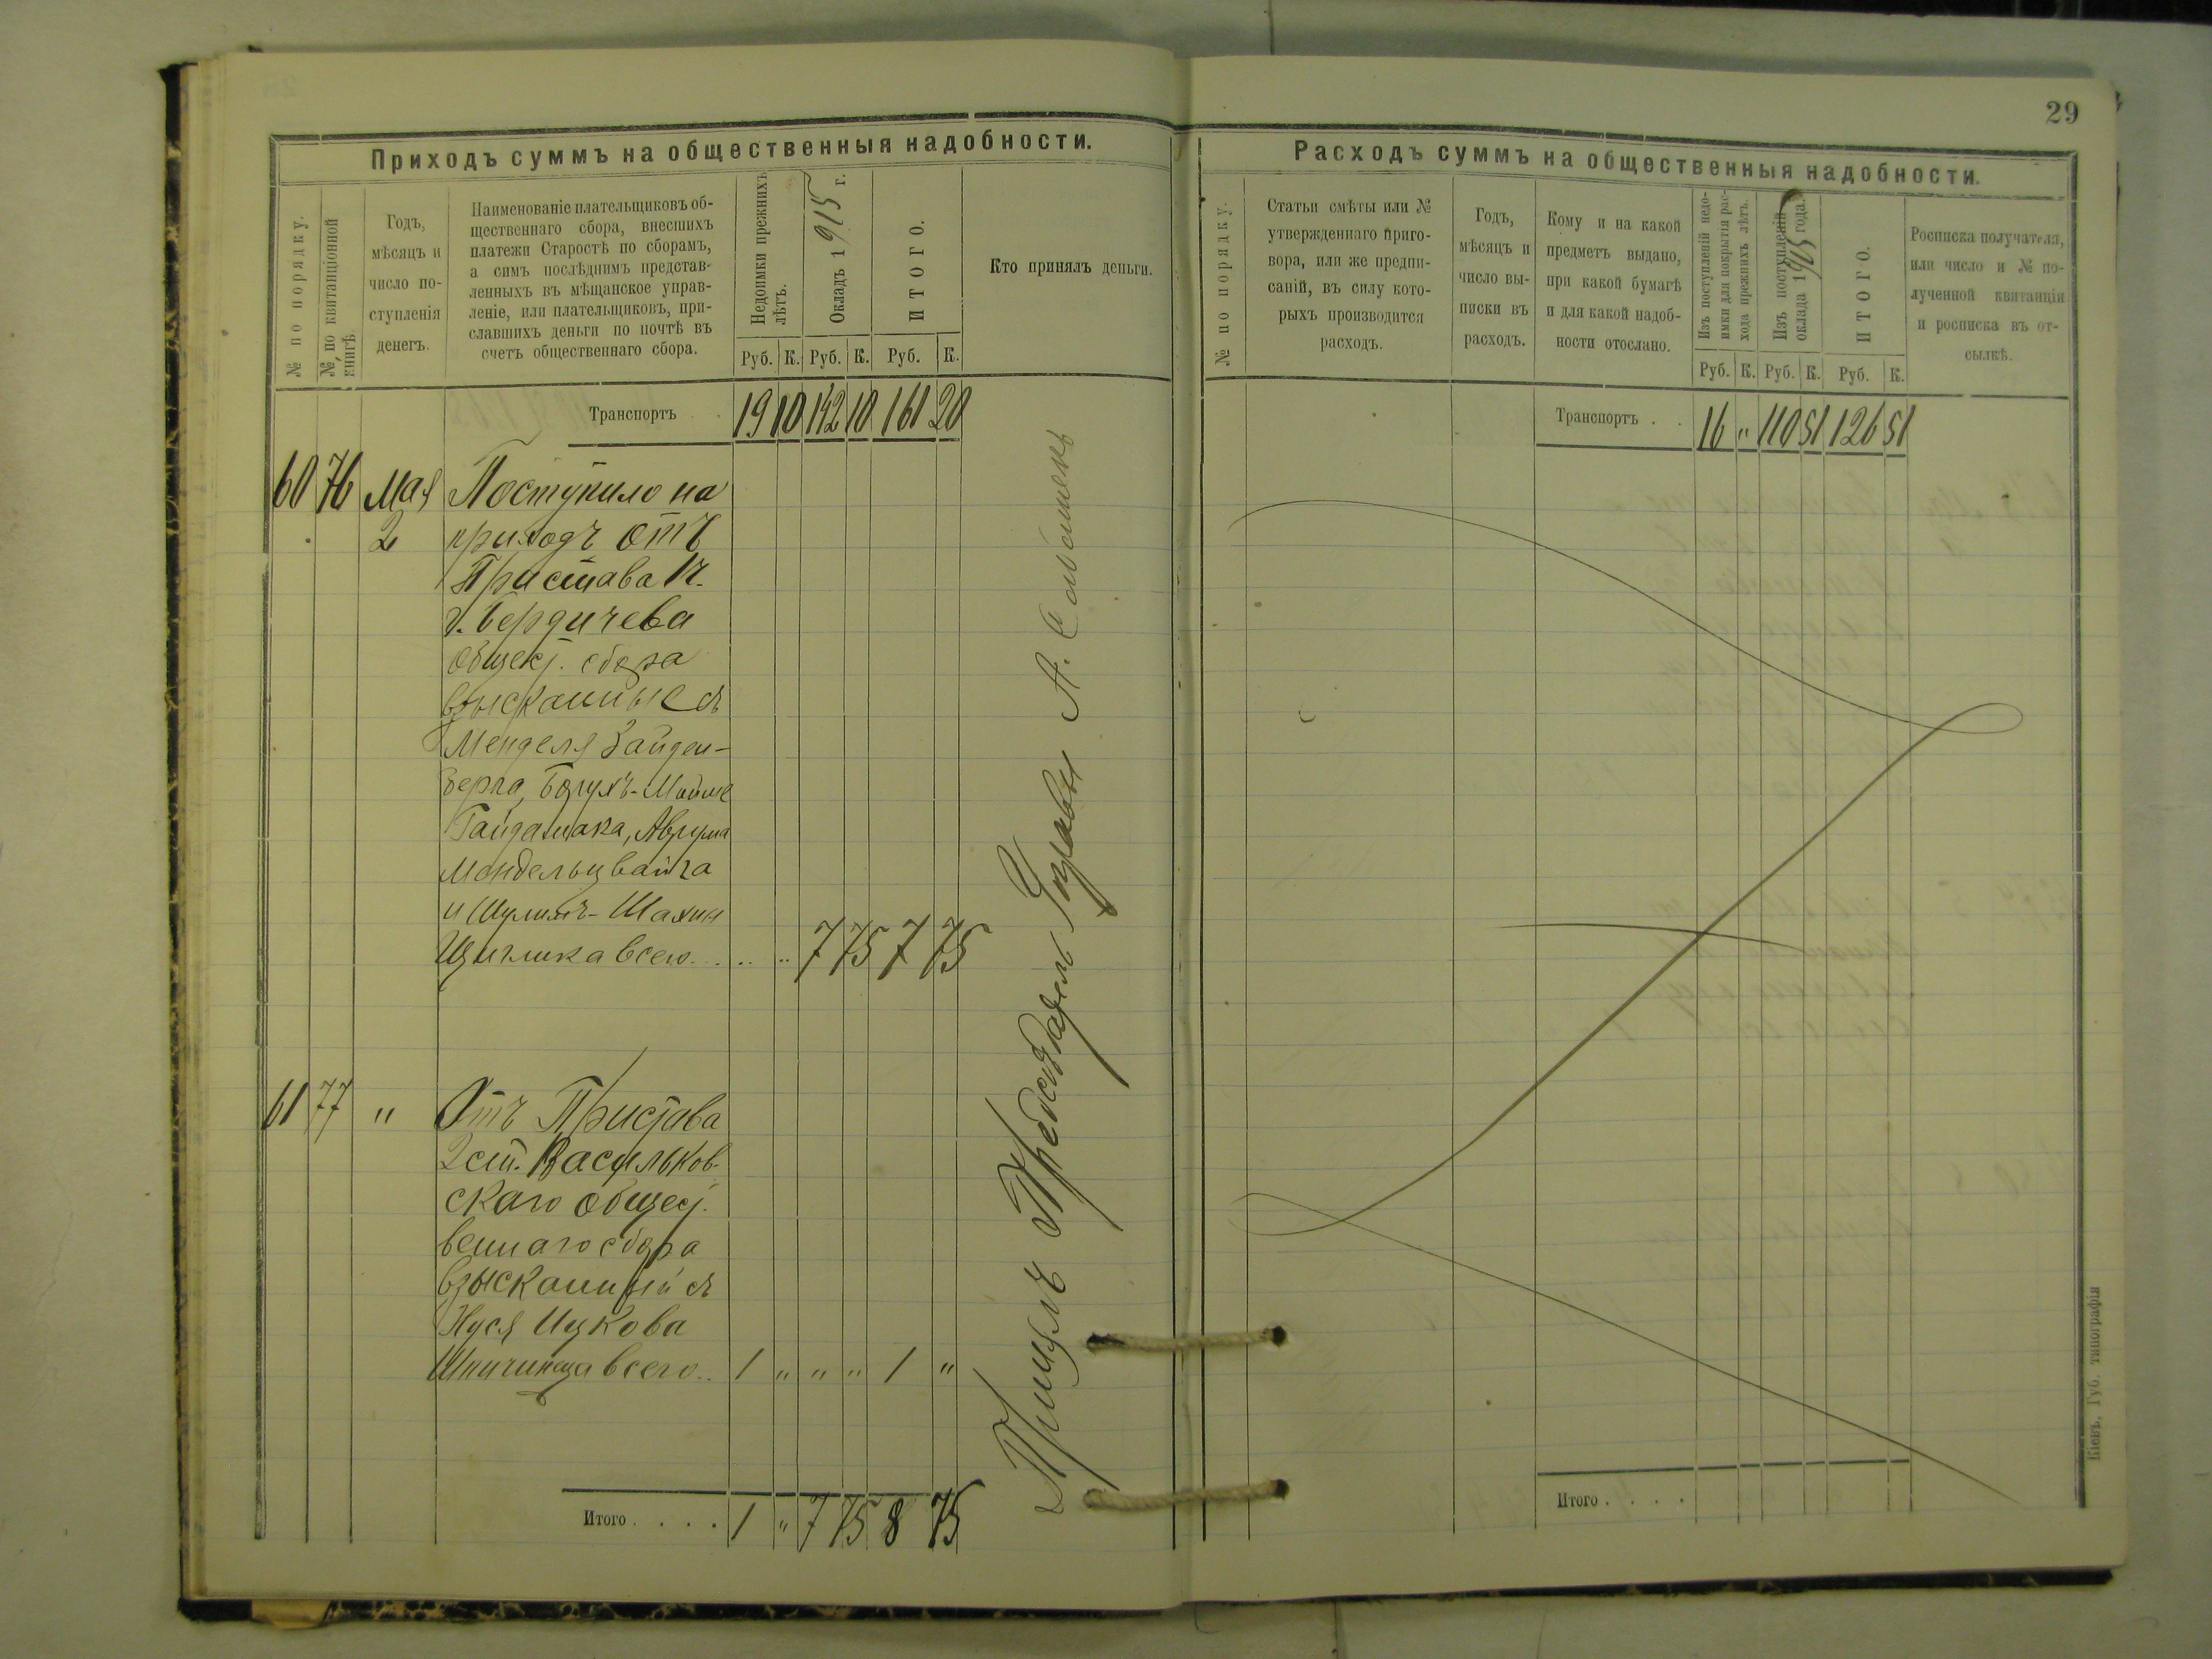 Приходъ суммъ на общественныя надобности.
№ по порядку.
№ по квитанціонной
книгѣ
Годъ,
мѣсяцъ и
число по-
ступленія
денегъ.
Наименованіе плательщиковъ об-
щественнаго сбора, внесшихъ
платежи Старостѣ по сборамъ,
а симъ послѣднимъ представ-
ленныхъ въ мѣщанское управ-
леніе, или плательщиковъ, при-
славшихъ деньги по почтѣ въ
счетъ общественнаго сбора.
Недоимки прежнихъ
лѣтъ.
Окладъ 1915 г.
ИТОГО.
Кто принялъ деньги.
Руб. К. Руб. К. Руб. К.
Транспортъ 19 10 142 10 161 20
60 76 Мая Поступило на
2 приходъ отъ
Пристава 1 ч.
г. Бердичева
общест. сбора
взысканные съ
Менделя Зайден-
берга, Борухъ-Мойше
Гайдамака, Аврума
Мондельцвайга
и Шулимъ-Шахны
Щиглика всего.. .. " 7 75 7 75
61 77 " Отъ Пристава
2 ст. Васильков-
скаго общест.
веннаго сбора
взысканный съ
Нуся Ицкова
Шпичинеца всего.. 1 " " " 1 "
Итого . . . . 1 " 7 75 8 75
Расходъ суммъ на общественныя надобности.
29
№ по порядку.
Статьи смѣты или №
утвержденнаго приго-
вора, или же предпи-
саній, въ силу кото-
рыхъ производится
расходъ.
Годъ,
мѣсяцъ и
число вы-
писки въ
расходъ.
Кому и на какой
предметъ выдано,
при какой бумагѣ
и для какой надоб-
ности отослано.
Изъ поступленій недо-
имки для покрытія рас-
хода прежнихъ лѣтъ.
Изъ поступленій
оклада 1915 года.
ИТОГО.
Росписка получателя,
или число и № по-
лученной квитанціи
и росписка въ от-
сылкѣ.
Руб. К. Руб. К. Руб. К.
Транспортъ . . 16 " 110 51 126 51
Итого . . . .
Кіевъ, Губ. типографія